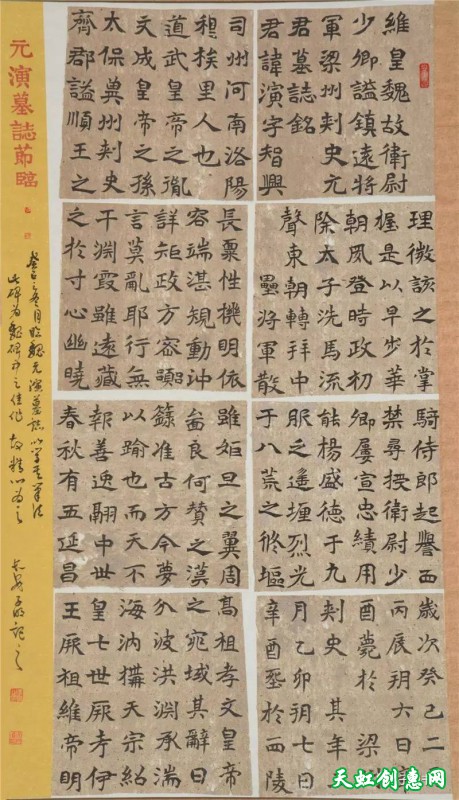 維皇魏故衛尉
少卿謚鎮遠將
軍梁州刺史元
君墓誌銘
君諱演字智興
司州河南洛陽
穆族里人也
道武皇帝之胤
文成皇帝之孫
太保冀州刺史
齊郡謚順王之
長稟性機明依
容端湛規動沖
詳矩政方容
言莫亂耶行無
干淵霞雖遠藏
之於寸心幽曉
理微該之於掌
握是以早步華
朝夙登時政初
除太子洗馬流
聲東朝轉拜中
壘將軍散
騎侍郎起譽西
禁尋授衛尉少
卿屢宣忠績用
能楊盛德于九
服之遙堰烈光
于八荒之修塸
雖姬旦之翼周
良何贊之漢
籙准古方今夢
以踰也而天不
報善逸翮中世
春秋有五延昌
歲次癸巳二
丙辰朔六日
酉薨於 梁
刺史 其年
月乙卯朔七日
辛酉塟於西陵
高祖孝文皇帝
之宛域其辭曰
分波洪淵承湍
海汭搆天宗紹
皇七世厥考伊
王厥祖維帝明
元演墓誌節臨
癸卯之冬月臨魏元演墓誌以學其筆法
此碑為魏碑中之佳作故精心為之
記之
天虹创意网